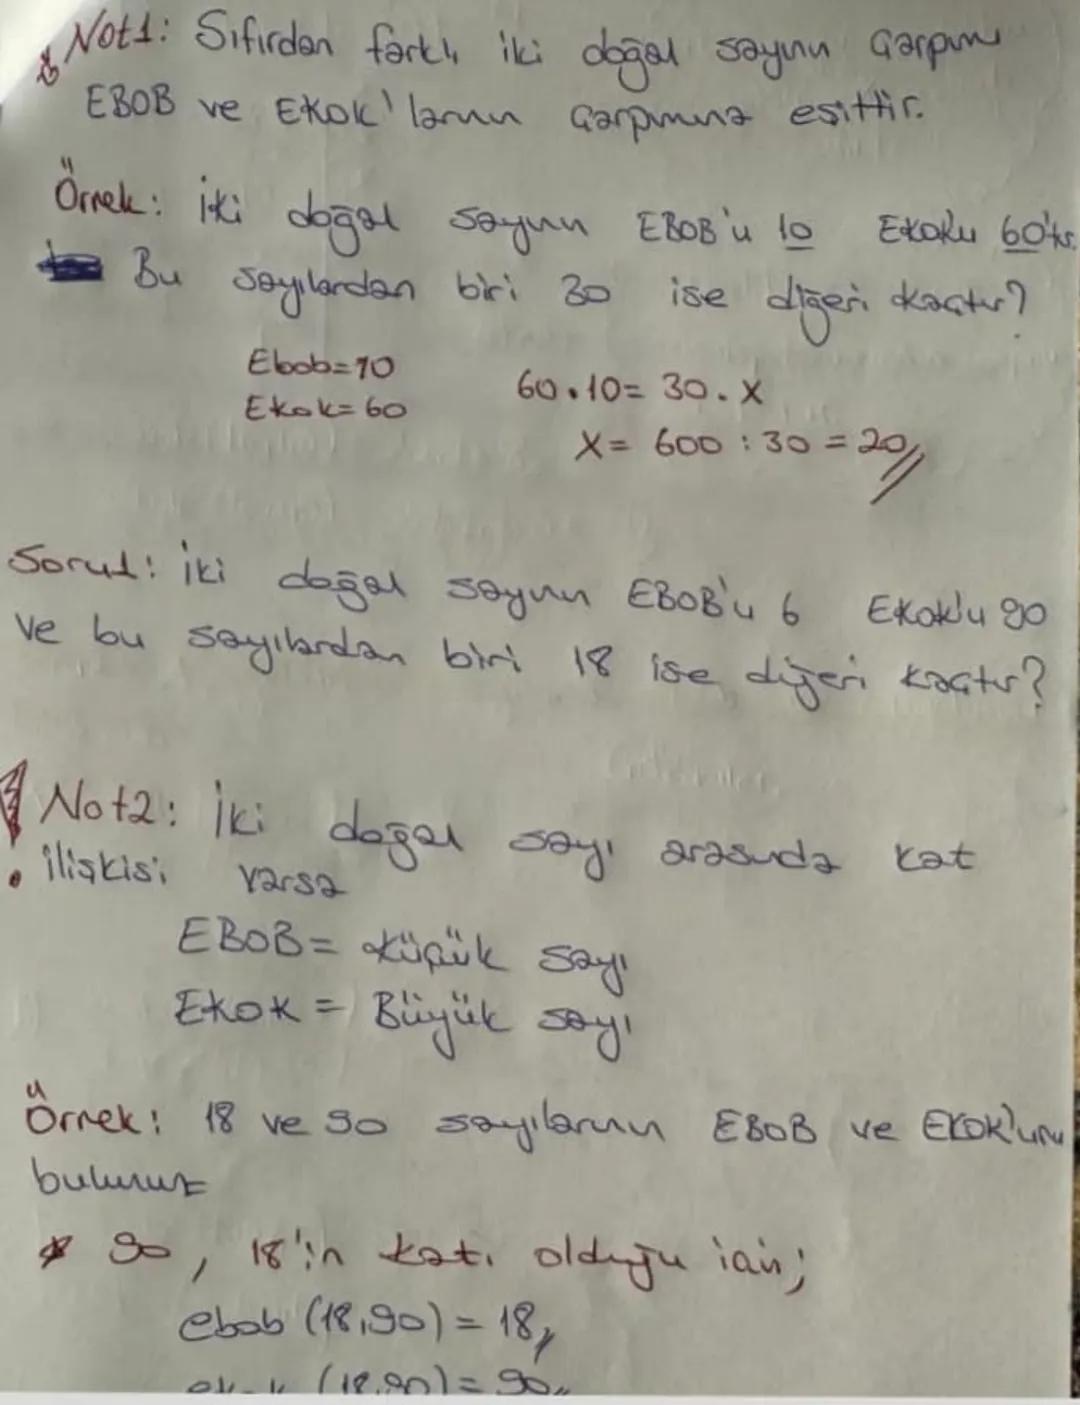 Not1: Sıfırdan farklı iki doğal sayının Çarpımı
EBOB ve EKOK'larının Çarpımına eşittir.
Örnek: İki doğal sayının EBOB'u 10 Ekok'u 60'tır.
Bu sayılardan biri 30 ise diğeri kaçtır?
Ebob=10
Ekok=60
60.10= 30.X
X= 600:30=20
Soru1: İki doğal sayının EBOB'u 6 Ekok'u 90
ve bu sayılardan biri 18 ise diğeri kaçtır?
Not2: İki doğal sayı arasında kat
ilişkisi varsa
EBOB= Küçük sayı
Ekok = Büyük sayı
Örnek: 18 ve 90 sayılarının EBOB ve EKOK'unu
bulunuz
* 90, 18'in katı olduğu için;
ebob (18,90) = 18
ekok (18,90) = 90